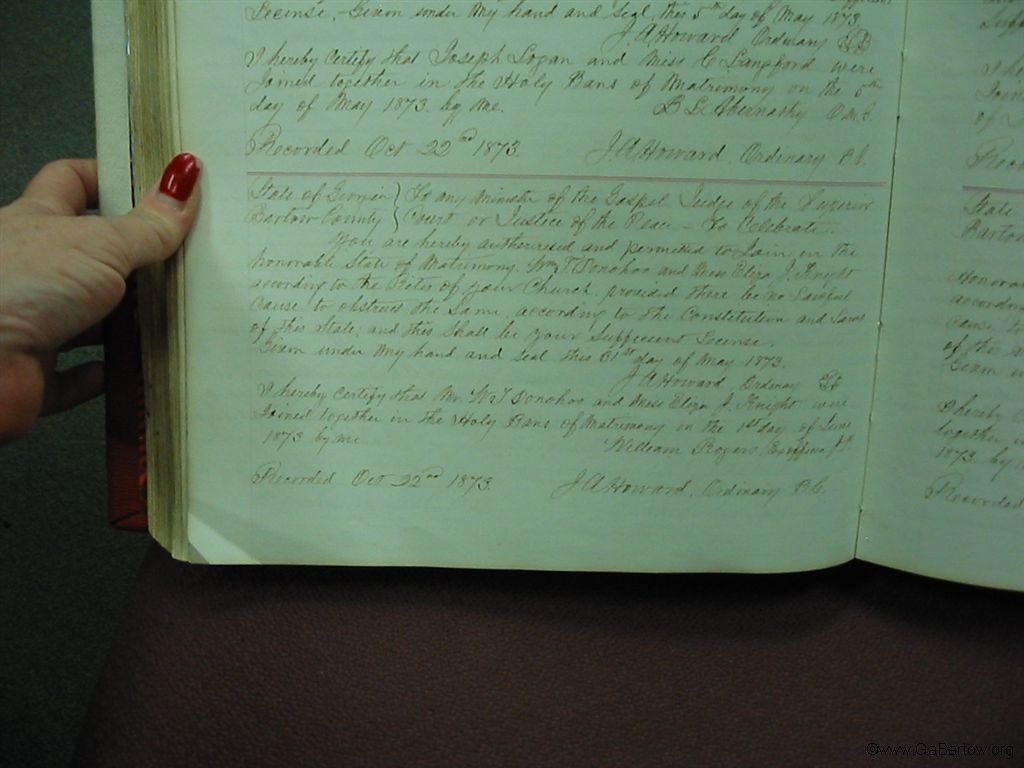 License, Given under my hand and Seal, this 5th day of May 1873
J. A. Howard Ordinary
I hereby Certify that Joseph Logan and Miss C Langford were
Joined together in the Holy Bans of Matrimony on the 5th
day of May 1873. by me. B G Abernathy O.M.G.
Recorded Oct 22nd 1873. J. A. Howard, Ordinary B.C.
State of Georgia } To any Minister of the Gospel Judge of the Superior
Bartow County } Court or Justice of the Peace - To Celebrate
You are hereby authorised and permitted to Join in the
honorable State of Matrimony. Wm T Donohoo and Miss Eliza J. Knight
according to the Rites of your Church. provided there be no Lawful
Cause to obstruct the Same. according to the Constitution and Laws
of this State, and this Shall be your Sufficient License.
Given under my hand and Seal this 31st day of May 1873.
J. A. Howard, Ordinary
I hereby Certify that Mr. W T Donohoo and Miss Eliza J. Knight were
Joined together in the Holy Bans of Matrimony on the 1st day of June
1873 by me William Rogers,
Recorded Oct 22nd 1873. J. A. Howard, Ordinary B.C.
State
Bartow
Honora
according
Cause to
of the
Given
I hereby
together
1873. by
Recorded
©www.GaBartow.org